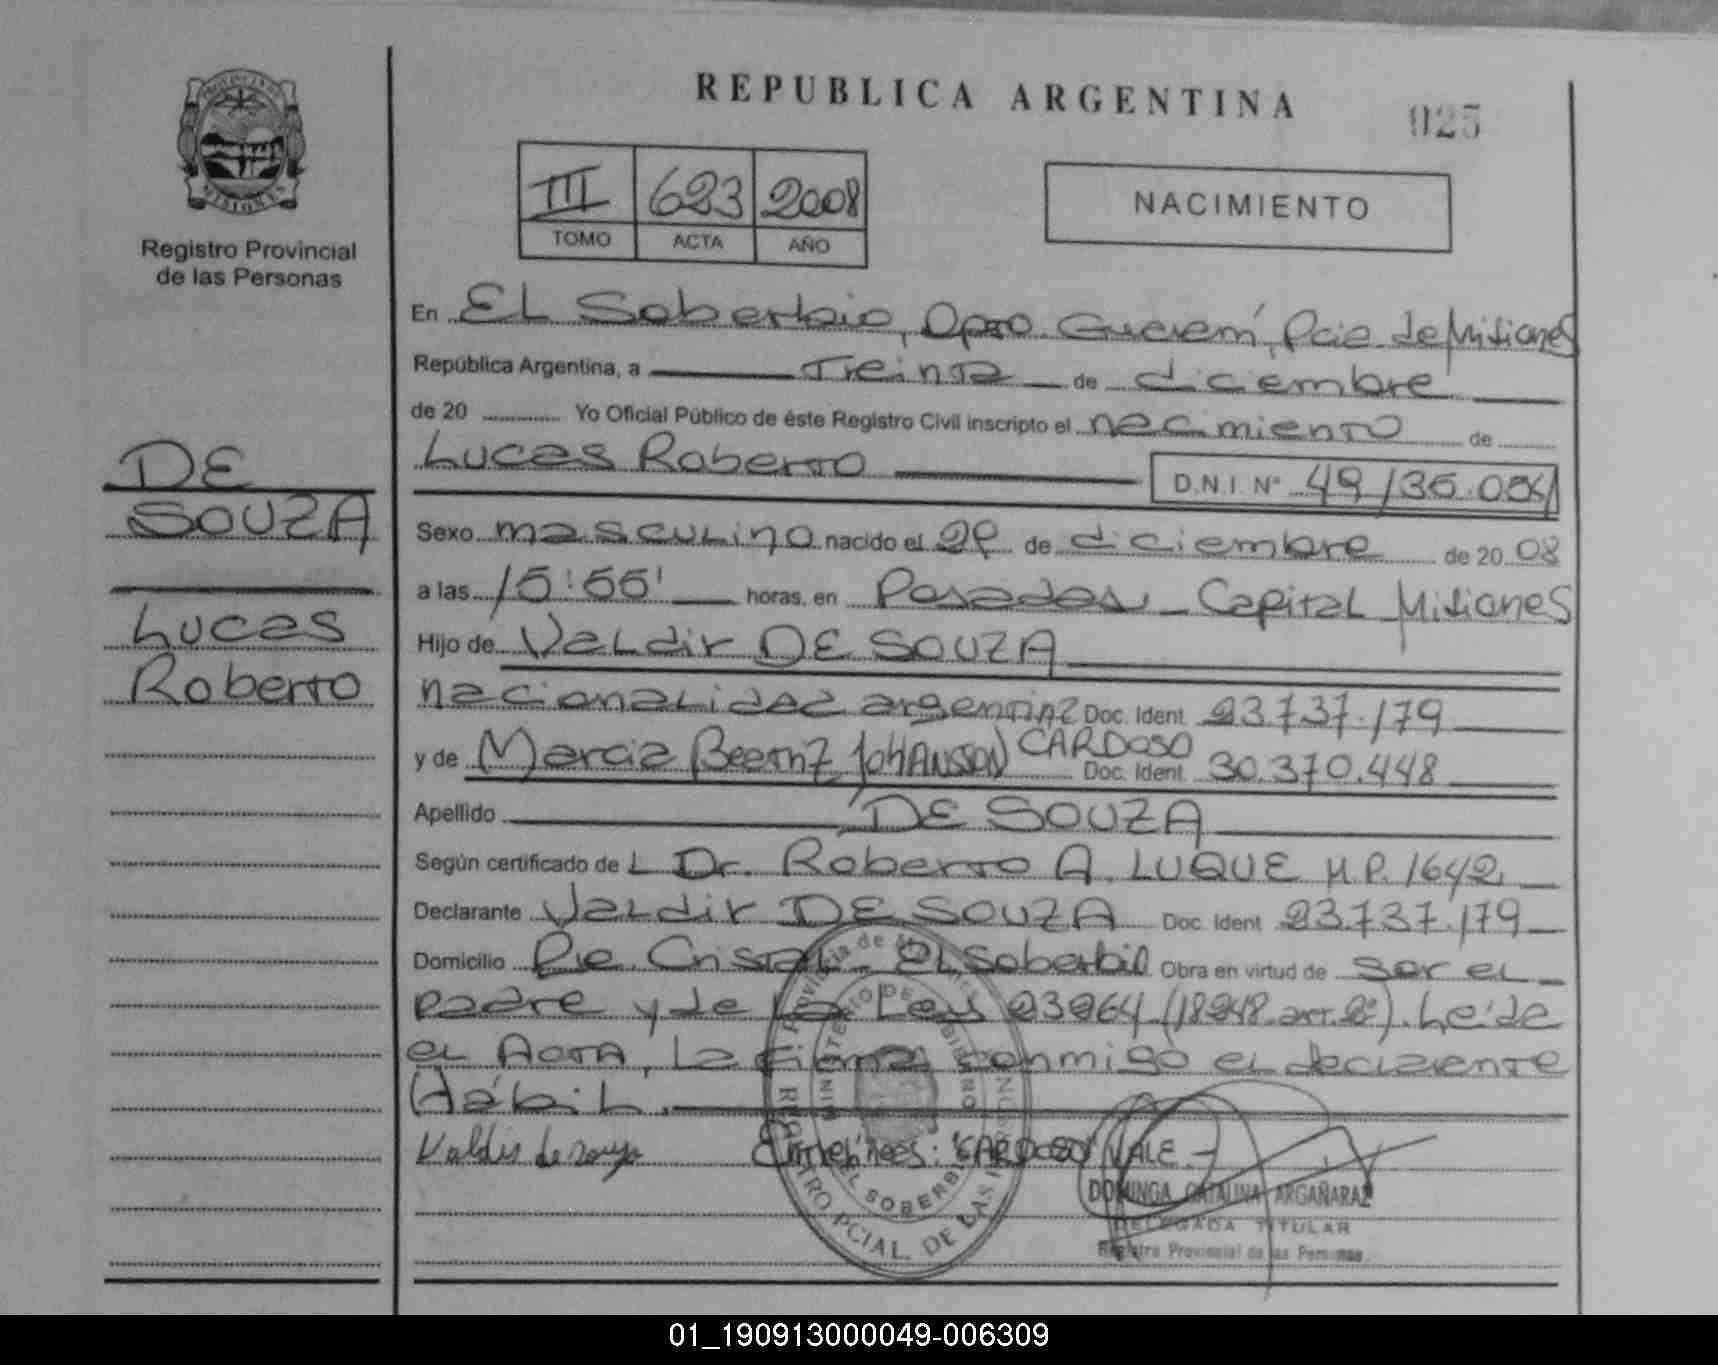 REPUBLICA ARGENTINA
025
PROVINCIA DE
MISIONES
Registro Provincial
de las Personas
III 623 2008
TOMO ACTA AÑO
NACIMIENTO
En El Soberbio, Dpto. Guaraní, Pcia de Misiones
República Argentina, a treinta de diciembre
de 20 ............ Yo Oficial Público de éste Registro Civil inscripto el nacimiento de
Lucas Roberto D.N.I. Nº 49/
Sexo masculino nacido el de diciembre de 2008
a las 15:55' horas, en Posadas, Capital Misiones
Hijo de Valdir DE SOUZA
nacionalidad argentina Doc. Ident. 23.737.179
CARDOSO
y de Marcia Beatriz JOHANSSON Doc. Ident. 30.370.448
Apellido DE SOUZA
Según certificado de L Dr. Roberto A. LUQUE M.P. 1642
Declarante Valdir DE SOUZA Doc. Ident. 23.737.179
Domicilio Pje Cristal El Soberbio Obra en virtud de ser el
padre y de la Ley 23264 (18248 art. 2º). Leída
el Acta, la firma conmigo el declarante
Hábil.
Valdir de Entrelíneas: "CARDOSO" VALE.
DE
SOUZA
Lucas
Roberto
DOMINGA CATALINA ARGAÑARAZ
DELEGADA TITULAR
Registro Provincial de las Personas
EL SOBERBIO
01_190913000049-006309